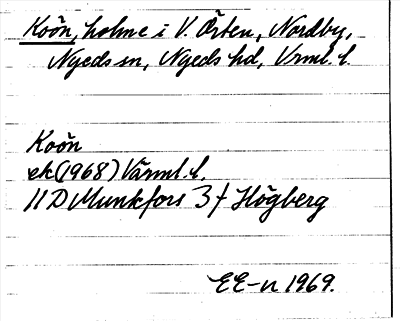 Koön, holme i V. Örten, Nordby,
Nyeds sn, Nyeds hd, Vrml. l.
Koön
ek (1968) Värml. l.
11 D Munkfors 3 f Högberg
EE-n 1969.